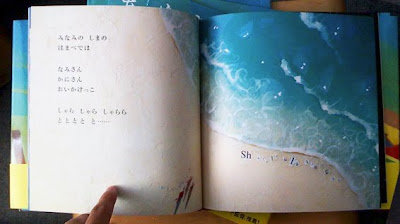 みなみの しまの
はまべでは
なみさん
かにさん
おいかけっこ
しゃら しゃら しゃらら
と と と と と……
Sh